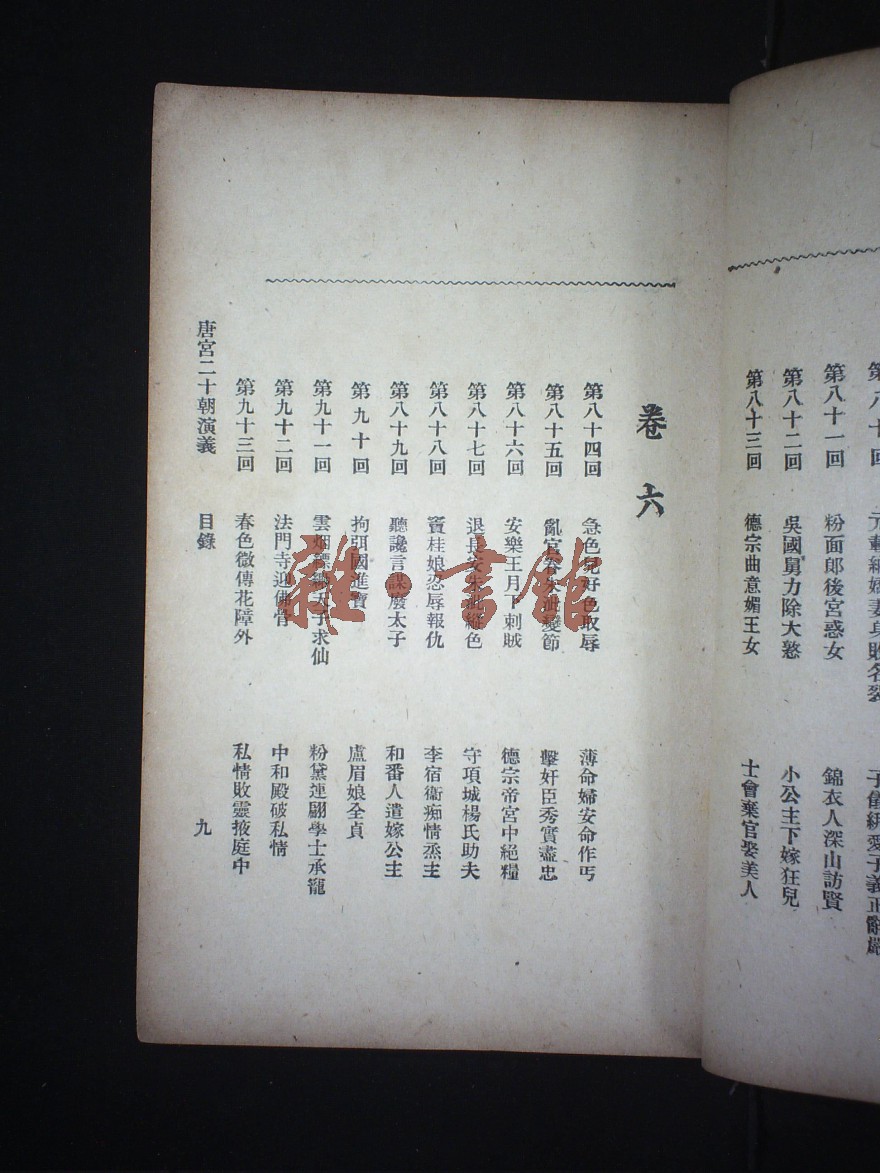 元載縱嬌妻身敗名裂 子儀綁愛子義正辭嚴
第八十一回 粉面郎後宮惑女 錦衣人深山訪賢
第八十二回 吳國舅力除大憝 小公主下嫁狂兒
第八十三回 德宗曲意媚王女 士會棄官娶美人
卷六
第八十四回 急色兒好色取辱 薄命婦安命作丐
第八十五回 亂宮眷朱泚變節 擊奸臣秀實盡忠
第八十六回 安樂王月下刺賊 德宗帝宮中絕糧
第八十七回 退長安朱泚縱色 守項城楊氏助夫
第八十八回 竇桂娘忍辱報仇 李宿衞痴情烝主
第八十九回 聽讒言謀廢太子 和番人遣嫁公主
第九十回 拘弭國進寶 盧眉娘全貞
第九十一回 雲烟縹緲天子求仙 粉黛連翩學士承寵
第九十二回 法門寺迎佛骨 中和殿破私情
第九十三回 春色微傳花障外 私情敗露掖庭中
唐宮二十朝演義 目錄 九
雜·書館